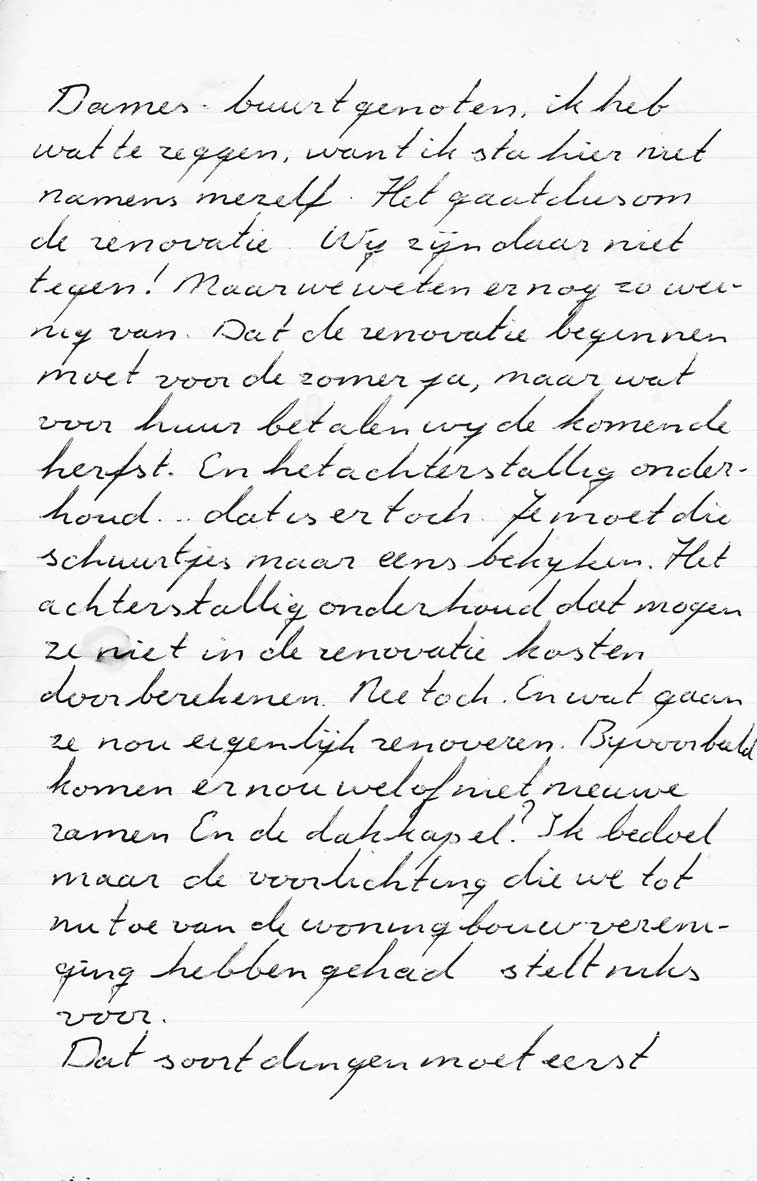 Dames - buurtgenoten, ik heb
wat te zeggen, want ik sta hier niet
namens mezelf. Het gaat dus om
de renovatie. Wij zijn daar niet
tegen! Maar we weten er nog zo wei-
nig van. Dat de renovatie beginnen
moet voor de zomer ja, maar wat
voor huur betalen wij de komende
herfst. En het achterstallig onder-
houd... dat is er toch. Je moet die
schuurtjes maar eens bekijken. Het
achterstallig onderhoud dat mogen
ze niet in de renovatie kosten
doorberekenen. Nee toch. En wat gaan
ze nou eigenlijk renoveren. Bijvoorbeeld
komen er nou wel of niet nieuwe
ramen En de dakkapel? Ik bedoel
maar de voorlichting die we tot
nu toe van de woningbouwvereni-
ging hebben gehad stelt niks
voor.
Dat soort dingen moet eerst